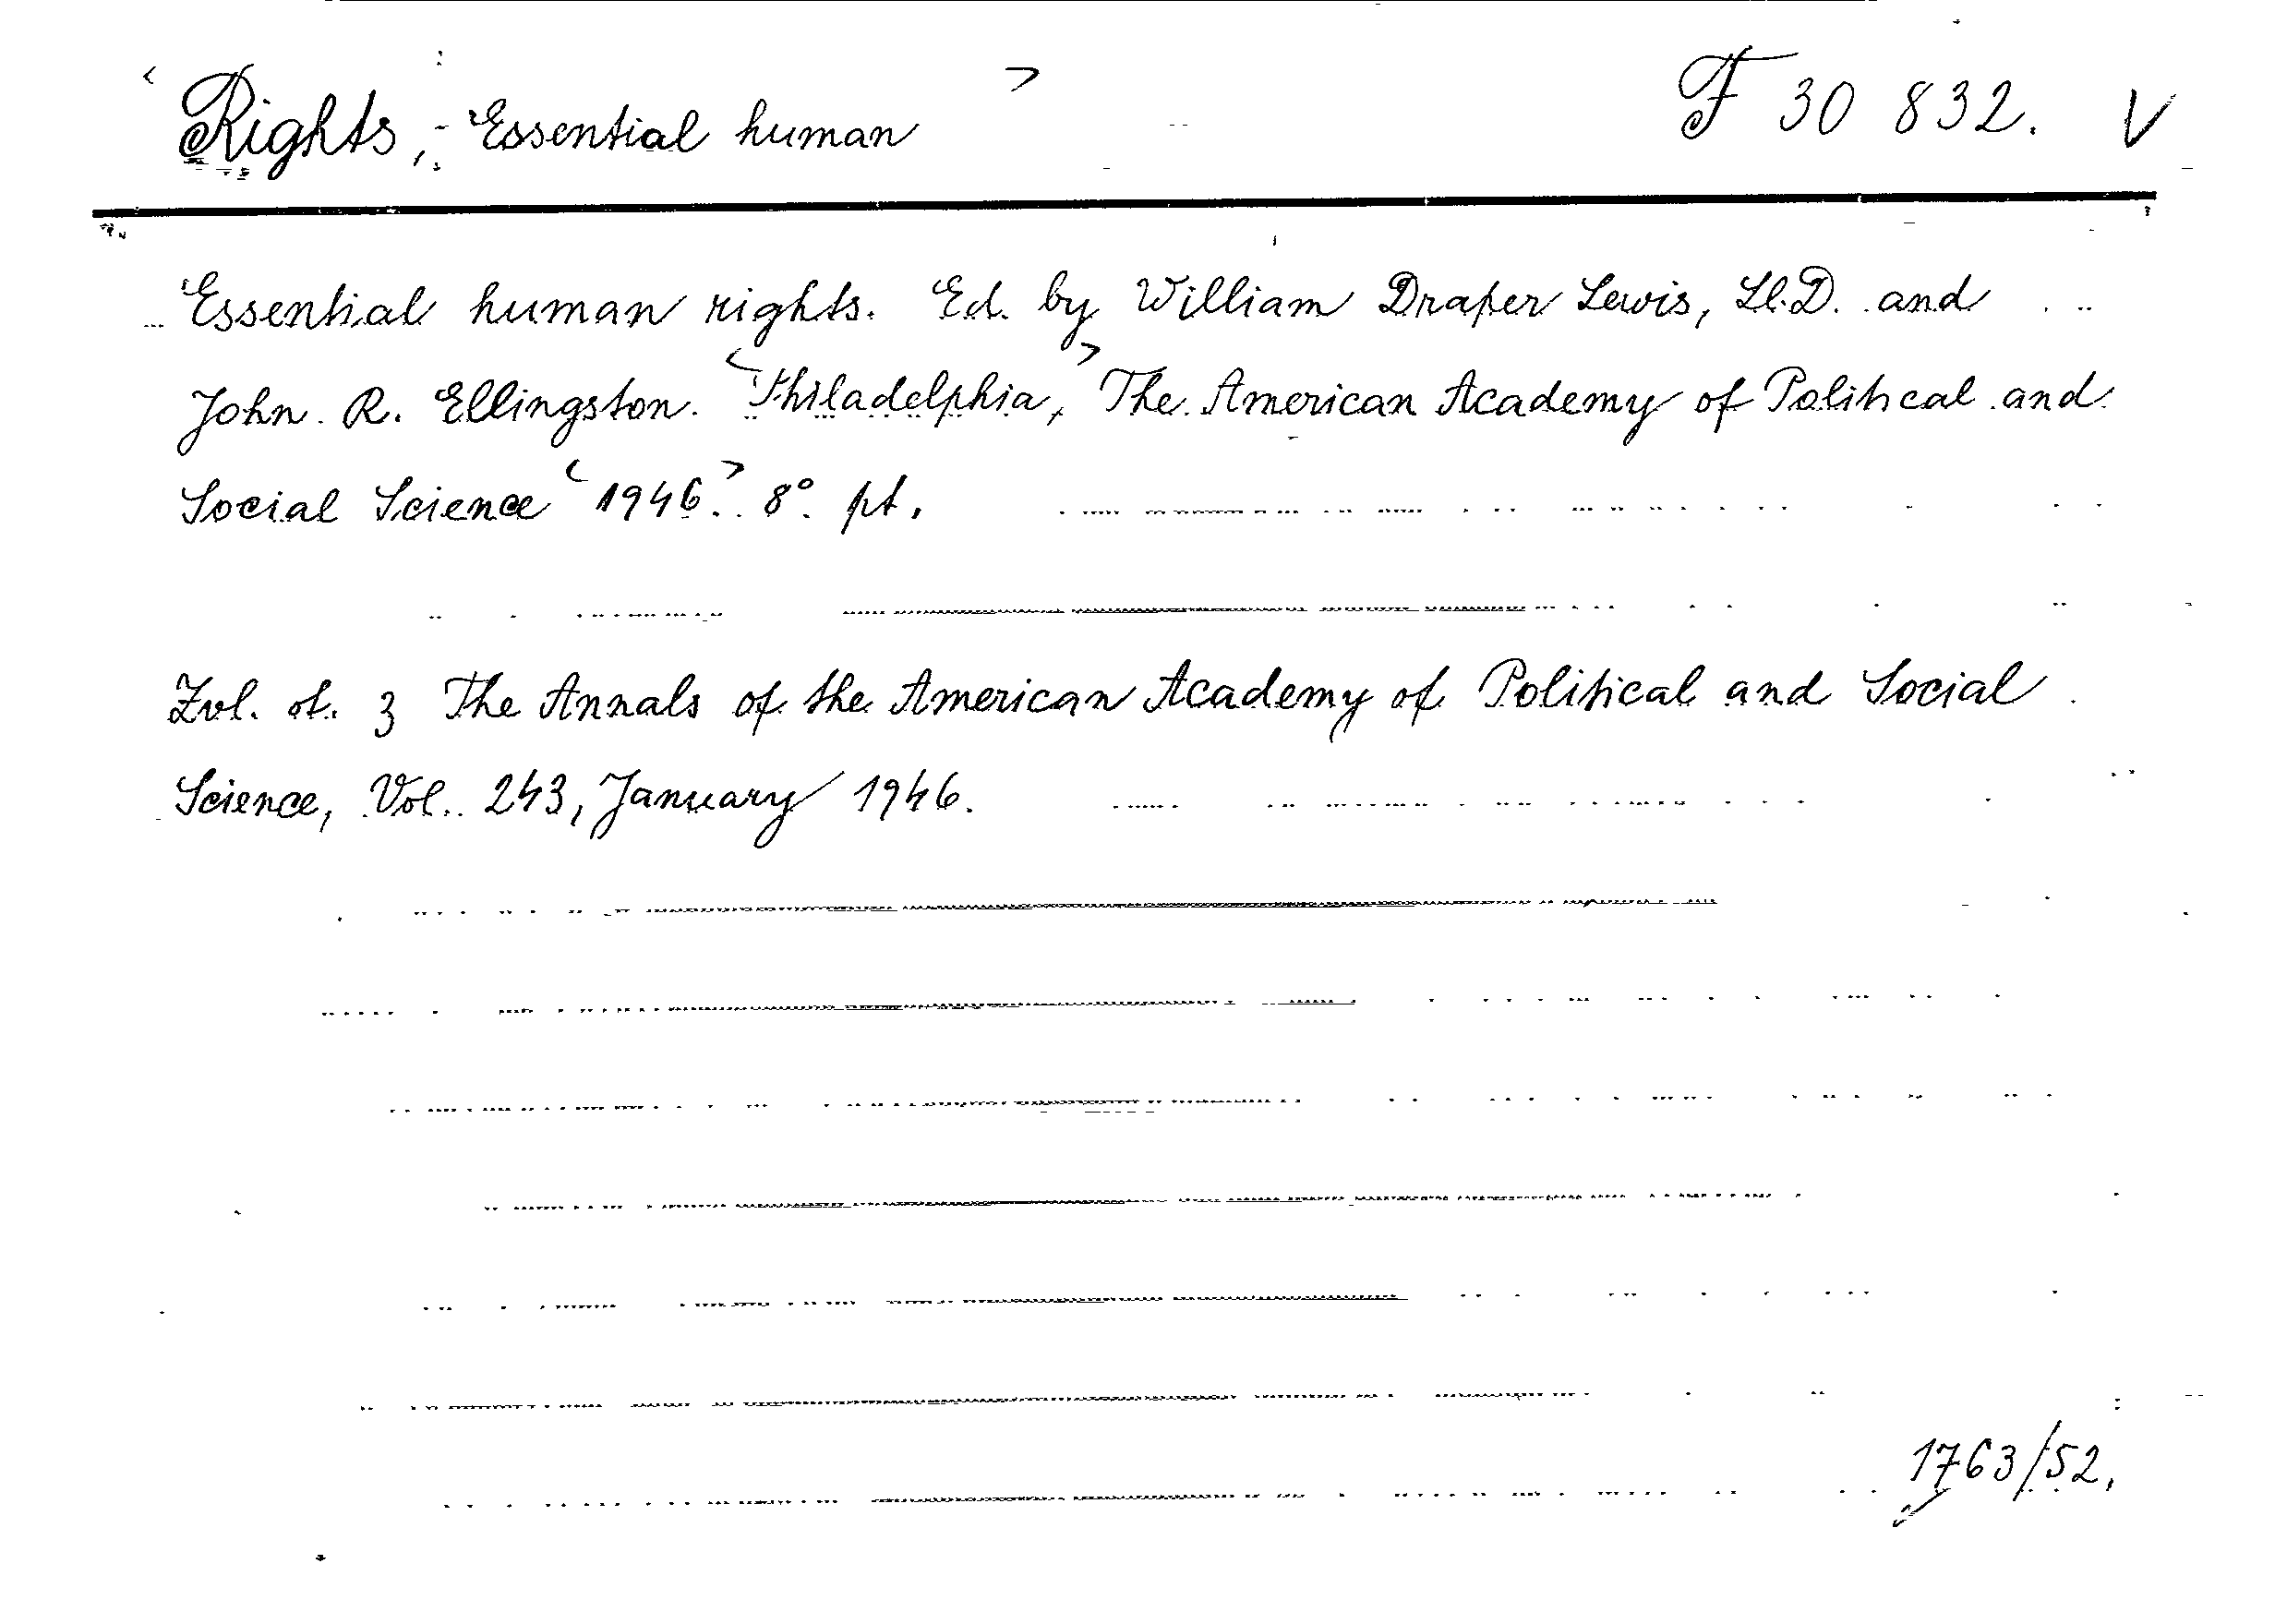 < Rights, - Essential human > F 30 832. V
Essential human rights. Ed. by William Draper Lewis, Ll.D. and
John R. Ellingston. <Philadelphia,> The American Academy of Political and
Social Science <1946.> 8° pt.
Zvl. ot. z The Annals of the American Academy of Political and Social
Science, Vol. 243, January 1946.
1763/52.